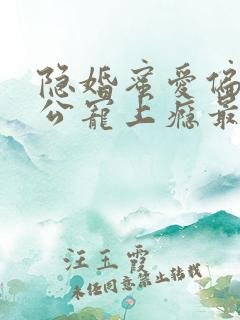 隐婚蜜爱偏
公宠上瘾最
汪玉霞
未经同意禁止转载